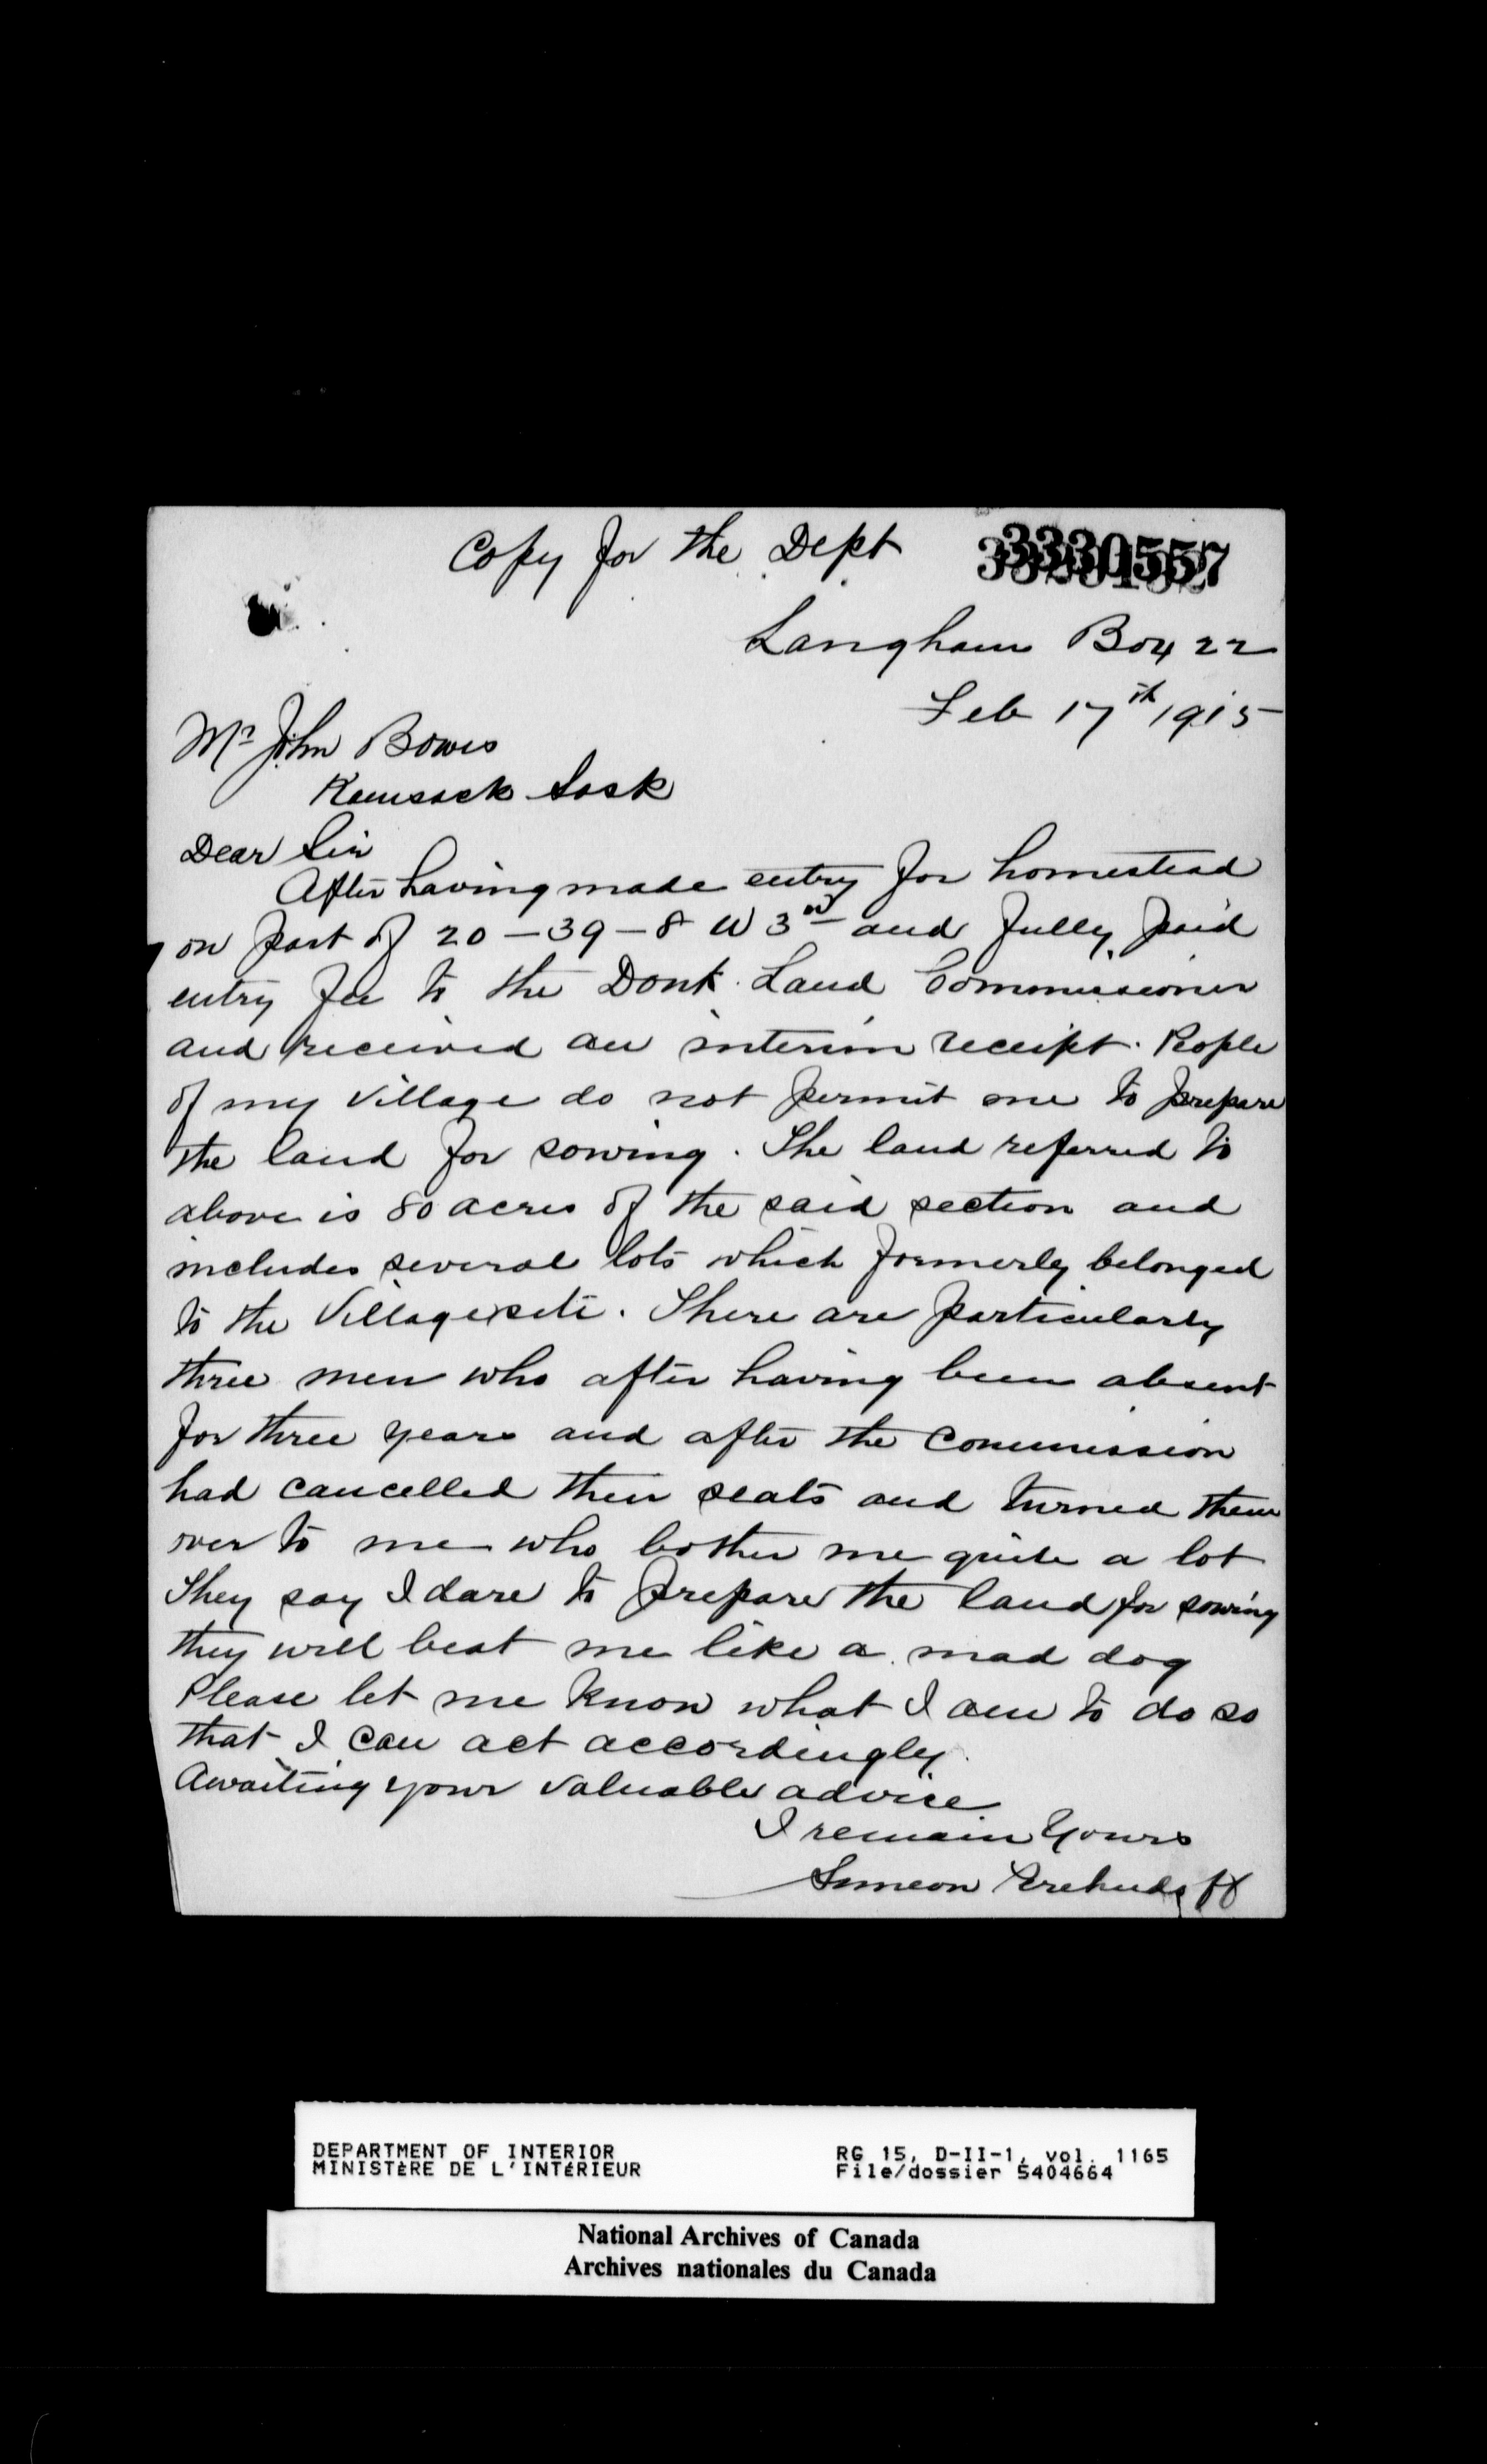 Copy for the Dept
3330557
Langham Box 22
Feb 17th 1915
Mr John Bowes
Kamsack Sask
Dear Sir
After having made entry for homestead
on part of 20-39-8 W 3rd and fully paid
entry fee to the Douk. Land Commissioner
and received an interim receipt. People
of my village do not permit me to prepare
the land for sowing. The land referred to
above is 80 acres of the said section and
includes several lots which formerly belonged
to the Villagesite. There are particularly
three men who after having been absent
for three years and after the Commission
had cancelled their seats and turned them
over to me who bother me quite a lot
They say I dare to prepare the land for sowing
they will beat me like a mad dog
Please let me know what I am to do so
that I can act accordingly.
Awaiting your valuable advice
I remain Yours
Simeon
DEPARTMENT OF INTERIOR
MINISTÈRE DE L'INTÉRIEUR
RG 15, D-II-1, vol. 1165
File/dossier 5404664
National Archives of Canada
Archives nationales du Canada